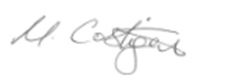 M. Costigan